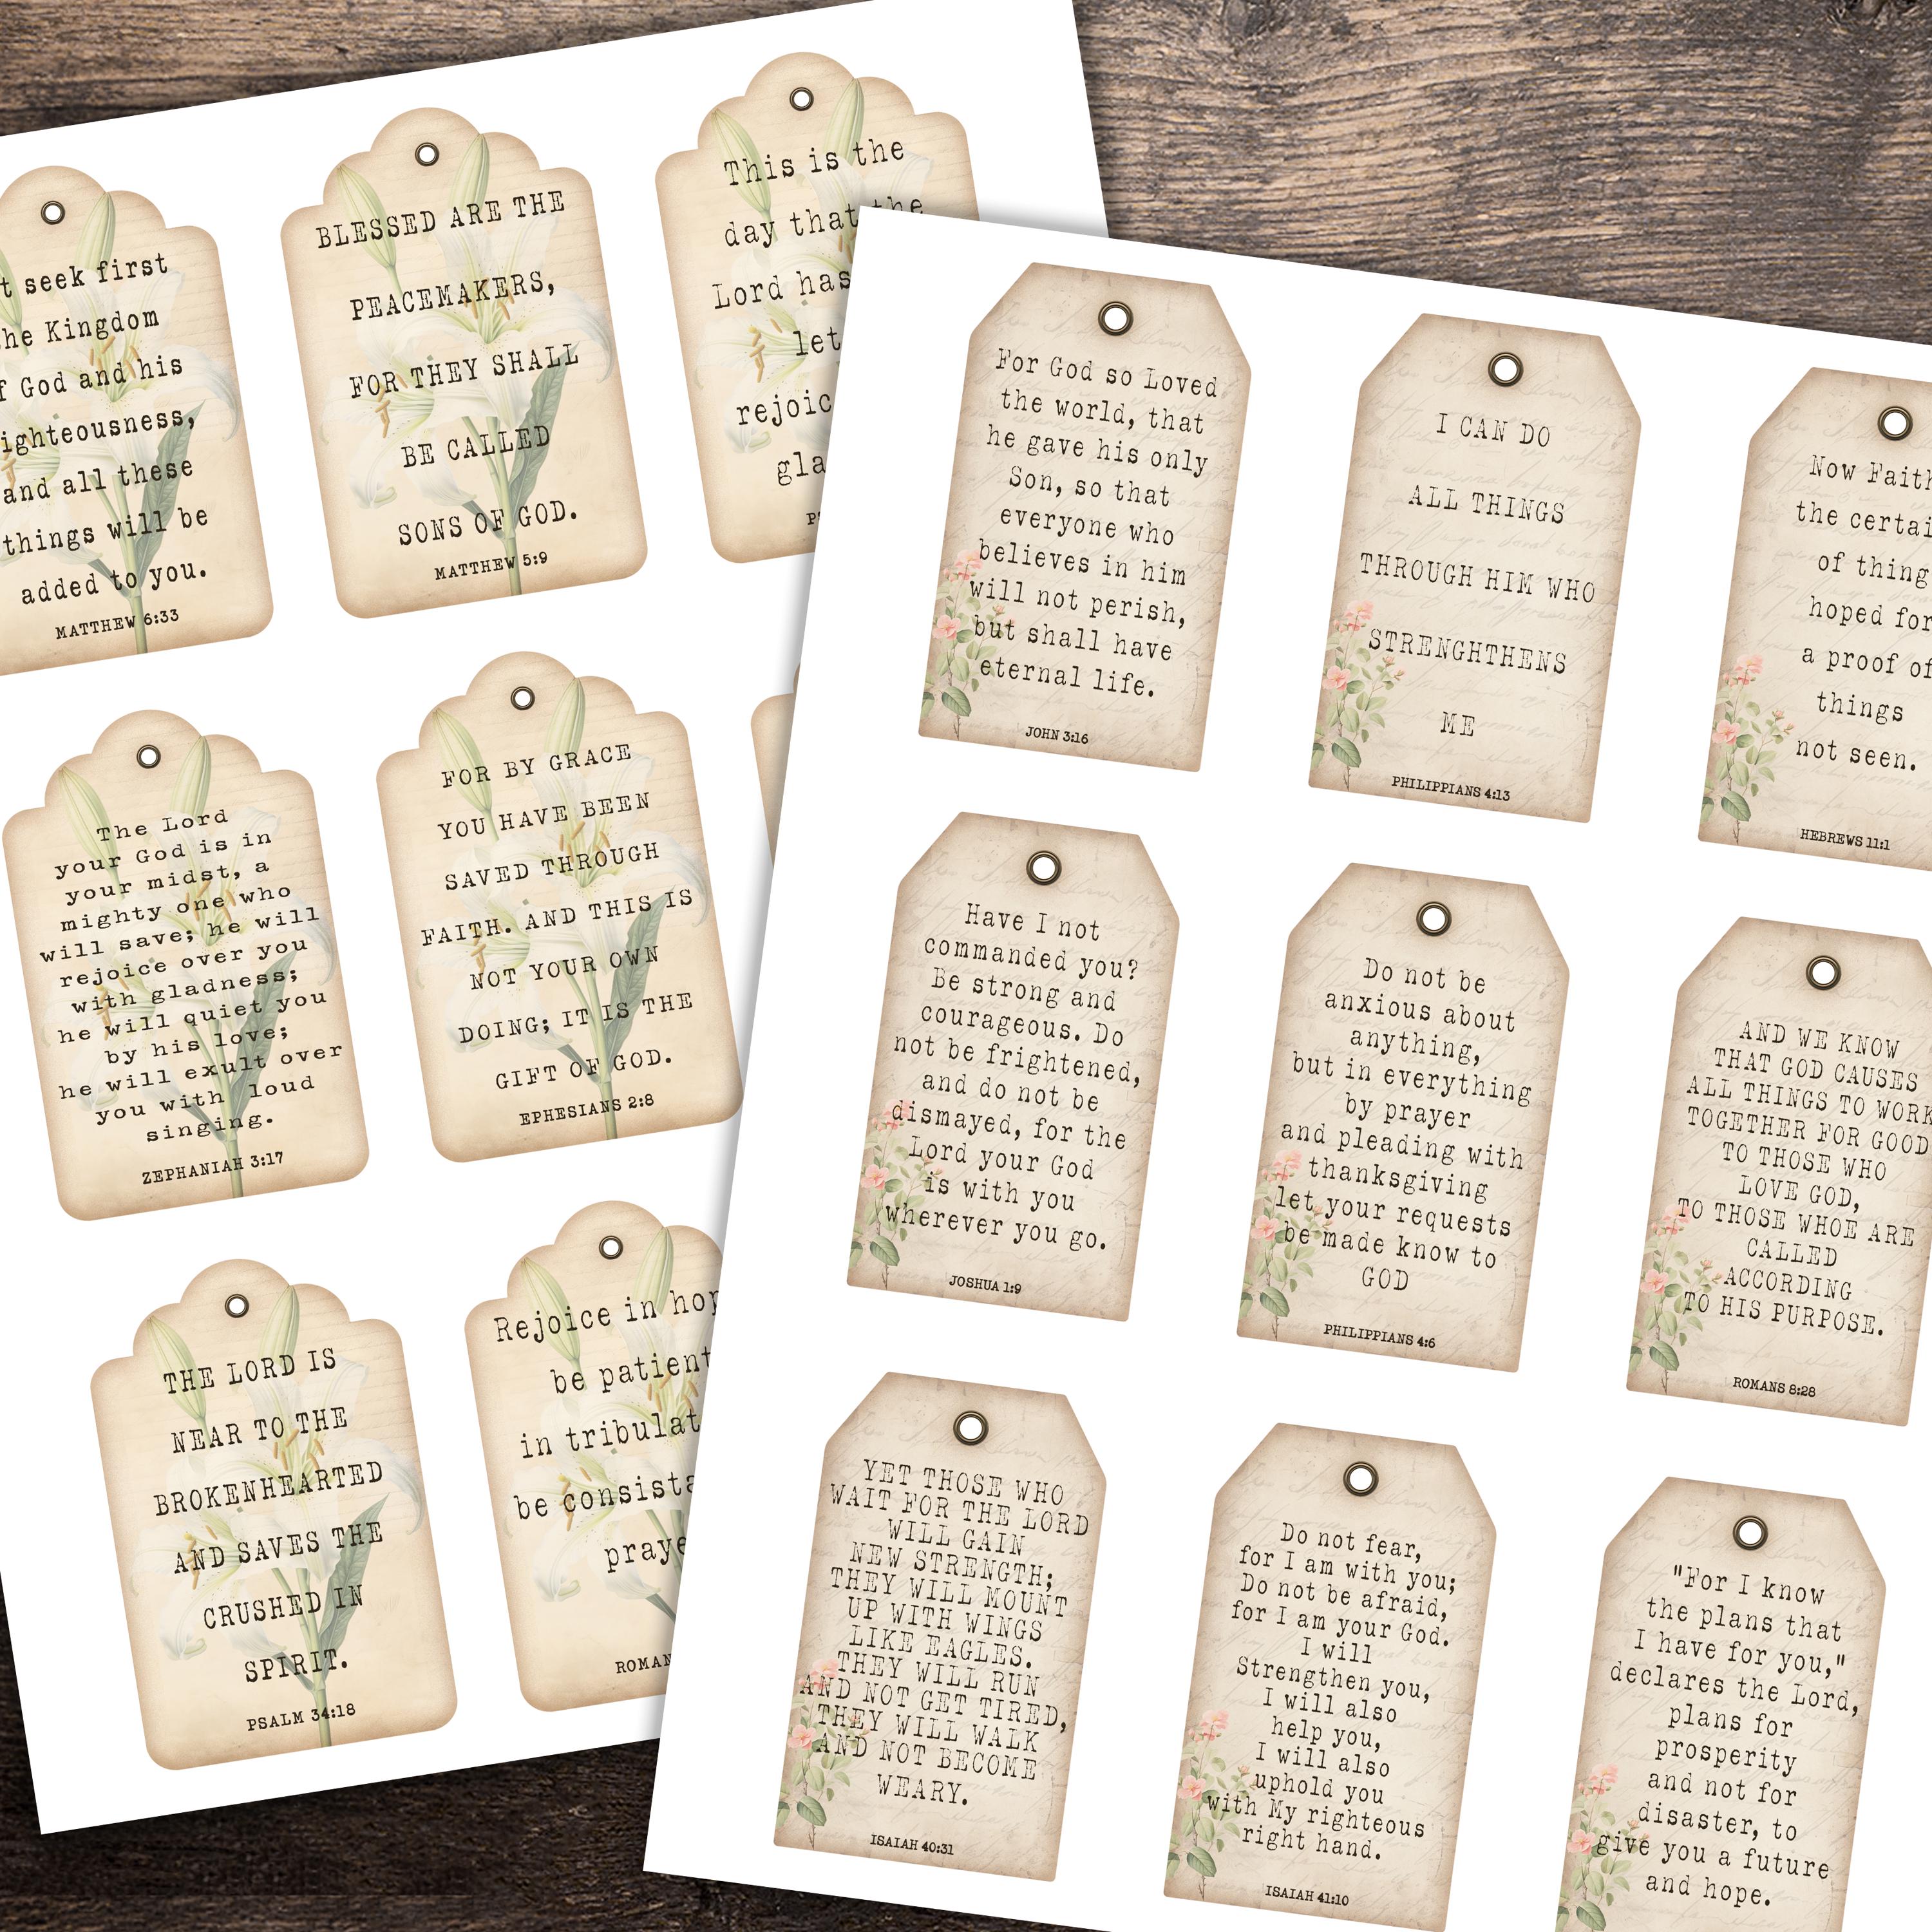 t seek first
he Kingdom
f God and his
ighteousness,
and all these
things will be
added to you.
MATTHEW 6:33
BLESSED ARE THE
PEACEMAKERS,
FOR THEY SHALL
BE CALLED
SONS OF GOD.
MATTHEW 5:9
This is the
day that the
Lord has
let
rejoic
gla
The Lord
your God is in
your midst, a
mighty one who
will save; he will
rejoice over you
with gladness;
he will quiet you
by his love;
he will exult over
you with loud
singing.
ZEPHANIAH 3:17
FOR BY GRACE
YOU HAVE BEEN
SAVED THROUGH
FAITH. AND THIS IS
NOT YOUR OWN
DOING; IT IS THE
GIFT OF GOD.
EPHESIANS 2:8
THE LORD IS
NEAR TO THE
BROKENHEARTED
AND SAVES THE
CRUSHED IN
SPIRIT.
PSALM 34:18
Rejoice in hop
be patient
in tribulat
be consista
praye
ROMAN
For God so Loved
the world, that
he gave his only
Son, so that
everyone who
believes in him
will not perish,
but shall have
eternal life.
JOHN 3:16
I CAN DO
ALL THINGS
THROUGH HIM WHO
STRENGHTHENS
ME
PHILIPPIANS 4:13
Now Faith
the certai
of thing
hoped for
a proof of
things
not seen.
HEBREWS 11:1
Have I not
commanded you?
Be strong and
courageous. Do
not be frightened,
and do not be
dismayed, for the
Lord your God
is with you
wherever you go.
JOSHUA 1:9
Do not be
anxious about
anything,
but in everything
by prayer
and pleading with
thanksgiving
let your requests
be made know to
GOD
PHILIPPIANS 4:6
AND WE KNOW
THAT GOD CAUSES
ALL THINGS TO WORK
TOGETHER FOR GOOD
TO THOSE WHO
LOVE GOD,
TO THOSE WHOE ARE
CALLED
ACCORDING
TO HIS PURPOSE.
ROMANS 8:28
YET THOSE WHO
WAIT FOR THE LORD
WILL GAIN
NEW STRENGTH;
THEY WILL MOUNT
UP WITH WINGS
LIKE EAGLES.
THEY WILL RUN
AND NOT GET TIRED,
THEY WILL WALK
AND NOT BECOME
WEARY.
ISAIAH 40:31
Do not fear,
for I am with you;
Do not be afraid,
for I am your God.
I will
Strengthen you,
I will also
help you,
I will also
uphold you
with My righteous
right hand.
ISAIAH 41:10
"For I know
the plans that
I have for you,"
declares the Lord,
plans for
prosperity
and not for
disaster, to
give you a future
and hope.